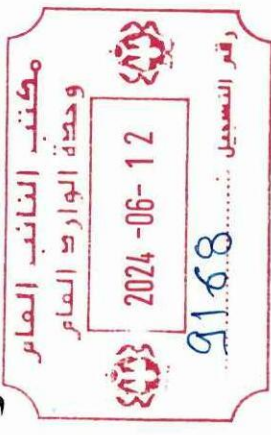 مكتب النائب العام
وحدة الوارد العام
2024 -06- 12
رقم التسجيل
9168